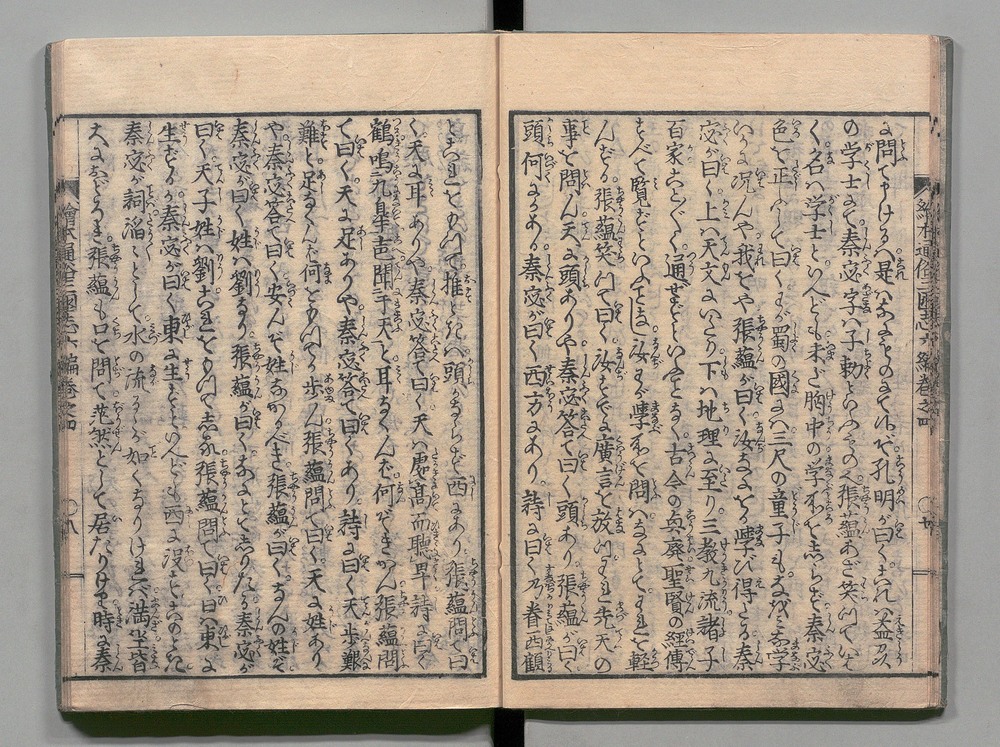 に問てけるハ是ハなに人にて候ぞ孔明が曰くこれハ益州
の学士にて秦宓字ハ子勅といふもの也張蘊あざ笑ひていは
く名ハ学士といへども未だ胸中の学不をしらず秦宓
色を正ふして曰くわが蜀の國にハ三尺の童子もなほ学
いに况んや我をや張蘊が曰く汝なにを學び得たる秦
宓が曰く上ハ天文にいたり下ハ地理に至り三教九流諸子
百家ことごとく通ぜずといふことなく古今の興廃聖賢の經傳
すべて覧ずといふことなし汝わが學を問ハなにとてわれを軽
んずる張蘊笑ひて曰く汝すでに廣言を放つわれ先天の
事を問ん天に頭ありや秦宓答て曰く頭あり張蘊が曰く
頭何にかある秦宓が曰く西方にあり詩に曰く乃眷西顧
とこれをもつて推ときハ頭かならず西にあり張蘊問て曰
く天に耳ありや秦宓答て曰く天ハ處高而聽卑詩に曰く
鶴鳴二九皐声聞二于天と耳なくんば何ぞきかん張蘊問
て曰く天に足ありや秦宓答て曰くあり詩に曰く天歩艱
難と足なくんば何をもつてか歩ん張蘊問て曰く天に姓あり
や秦宓答て曰く安んぞ姓なかるべき張蘊が曰くなんの姓ぞ
秦宓が曰く姓ハ劉なり張蘊が曰くなにとしてしりたる秦宓が
曰く天子姓ハ劉これをもつてしる張蘊問て曰く日東に
生ずるか秦宓が曰く東に生ずといへども西に没すこのとき
秦宓が詞滔々として水の流るるが如くなりけれバ満坐皆
大におどろき張蘊も口を閉て茫然として居たりける時に秦
繪本通俗三國志六編巻之四
繪本通俗三國志六編巻之四
〇八